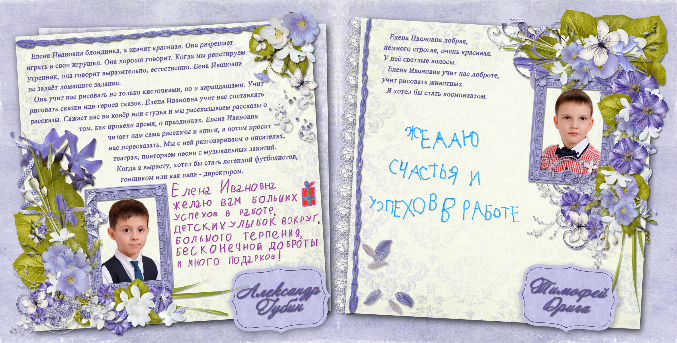 Елена Ивановна блондинка, а значит красивая. Она разрешает
играть в свои игрушки. Она хорошо говорит. Когда мы репетируем
утренник, она говорит выразительно, естественно. Елена Ивановна
не задаёт домашнее задание.
Она учит нас рисовать не только кисточками, но и карандашами. Учит
рисовать сказки или героев сказок. Елена Ивановна учит нас составлять
рассказы. Сажает нас на ковёр или стулья и мы рассказываем рассказы о
том, как провели время, о праздниках. Елена Ивановна
читает нам сама рассказы и книги, а потом просит
нас пересказать. Мы с ней разговариваем о писателях,
театрах, повторяем песни с музыкальных занятий.
Когда я вырасту, хотел бы стать легендой футболистов,
гонщиком или как папа - директором.
Елена Ивановна
желаю вам больших
успехов в работе,
детских улыбок вокруг,
большого терпения,
бесконечной доброты
и много подарков!
Александр
Губин
Елена Ивановна добрая,
немного строгая, очень красивая.
У неё светлые волосы.
Елена Ивановна учит нас доброте,
учит рисовать животных.
Я хотел бы стать космонавтом.
ЖЕЛАЮ
СЧАСТЬЯ И
УСПЕХОВ В РАБОТЕ
Тимофей